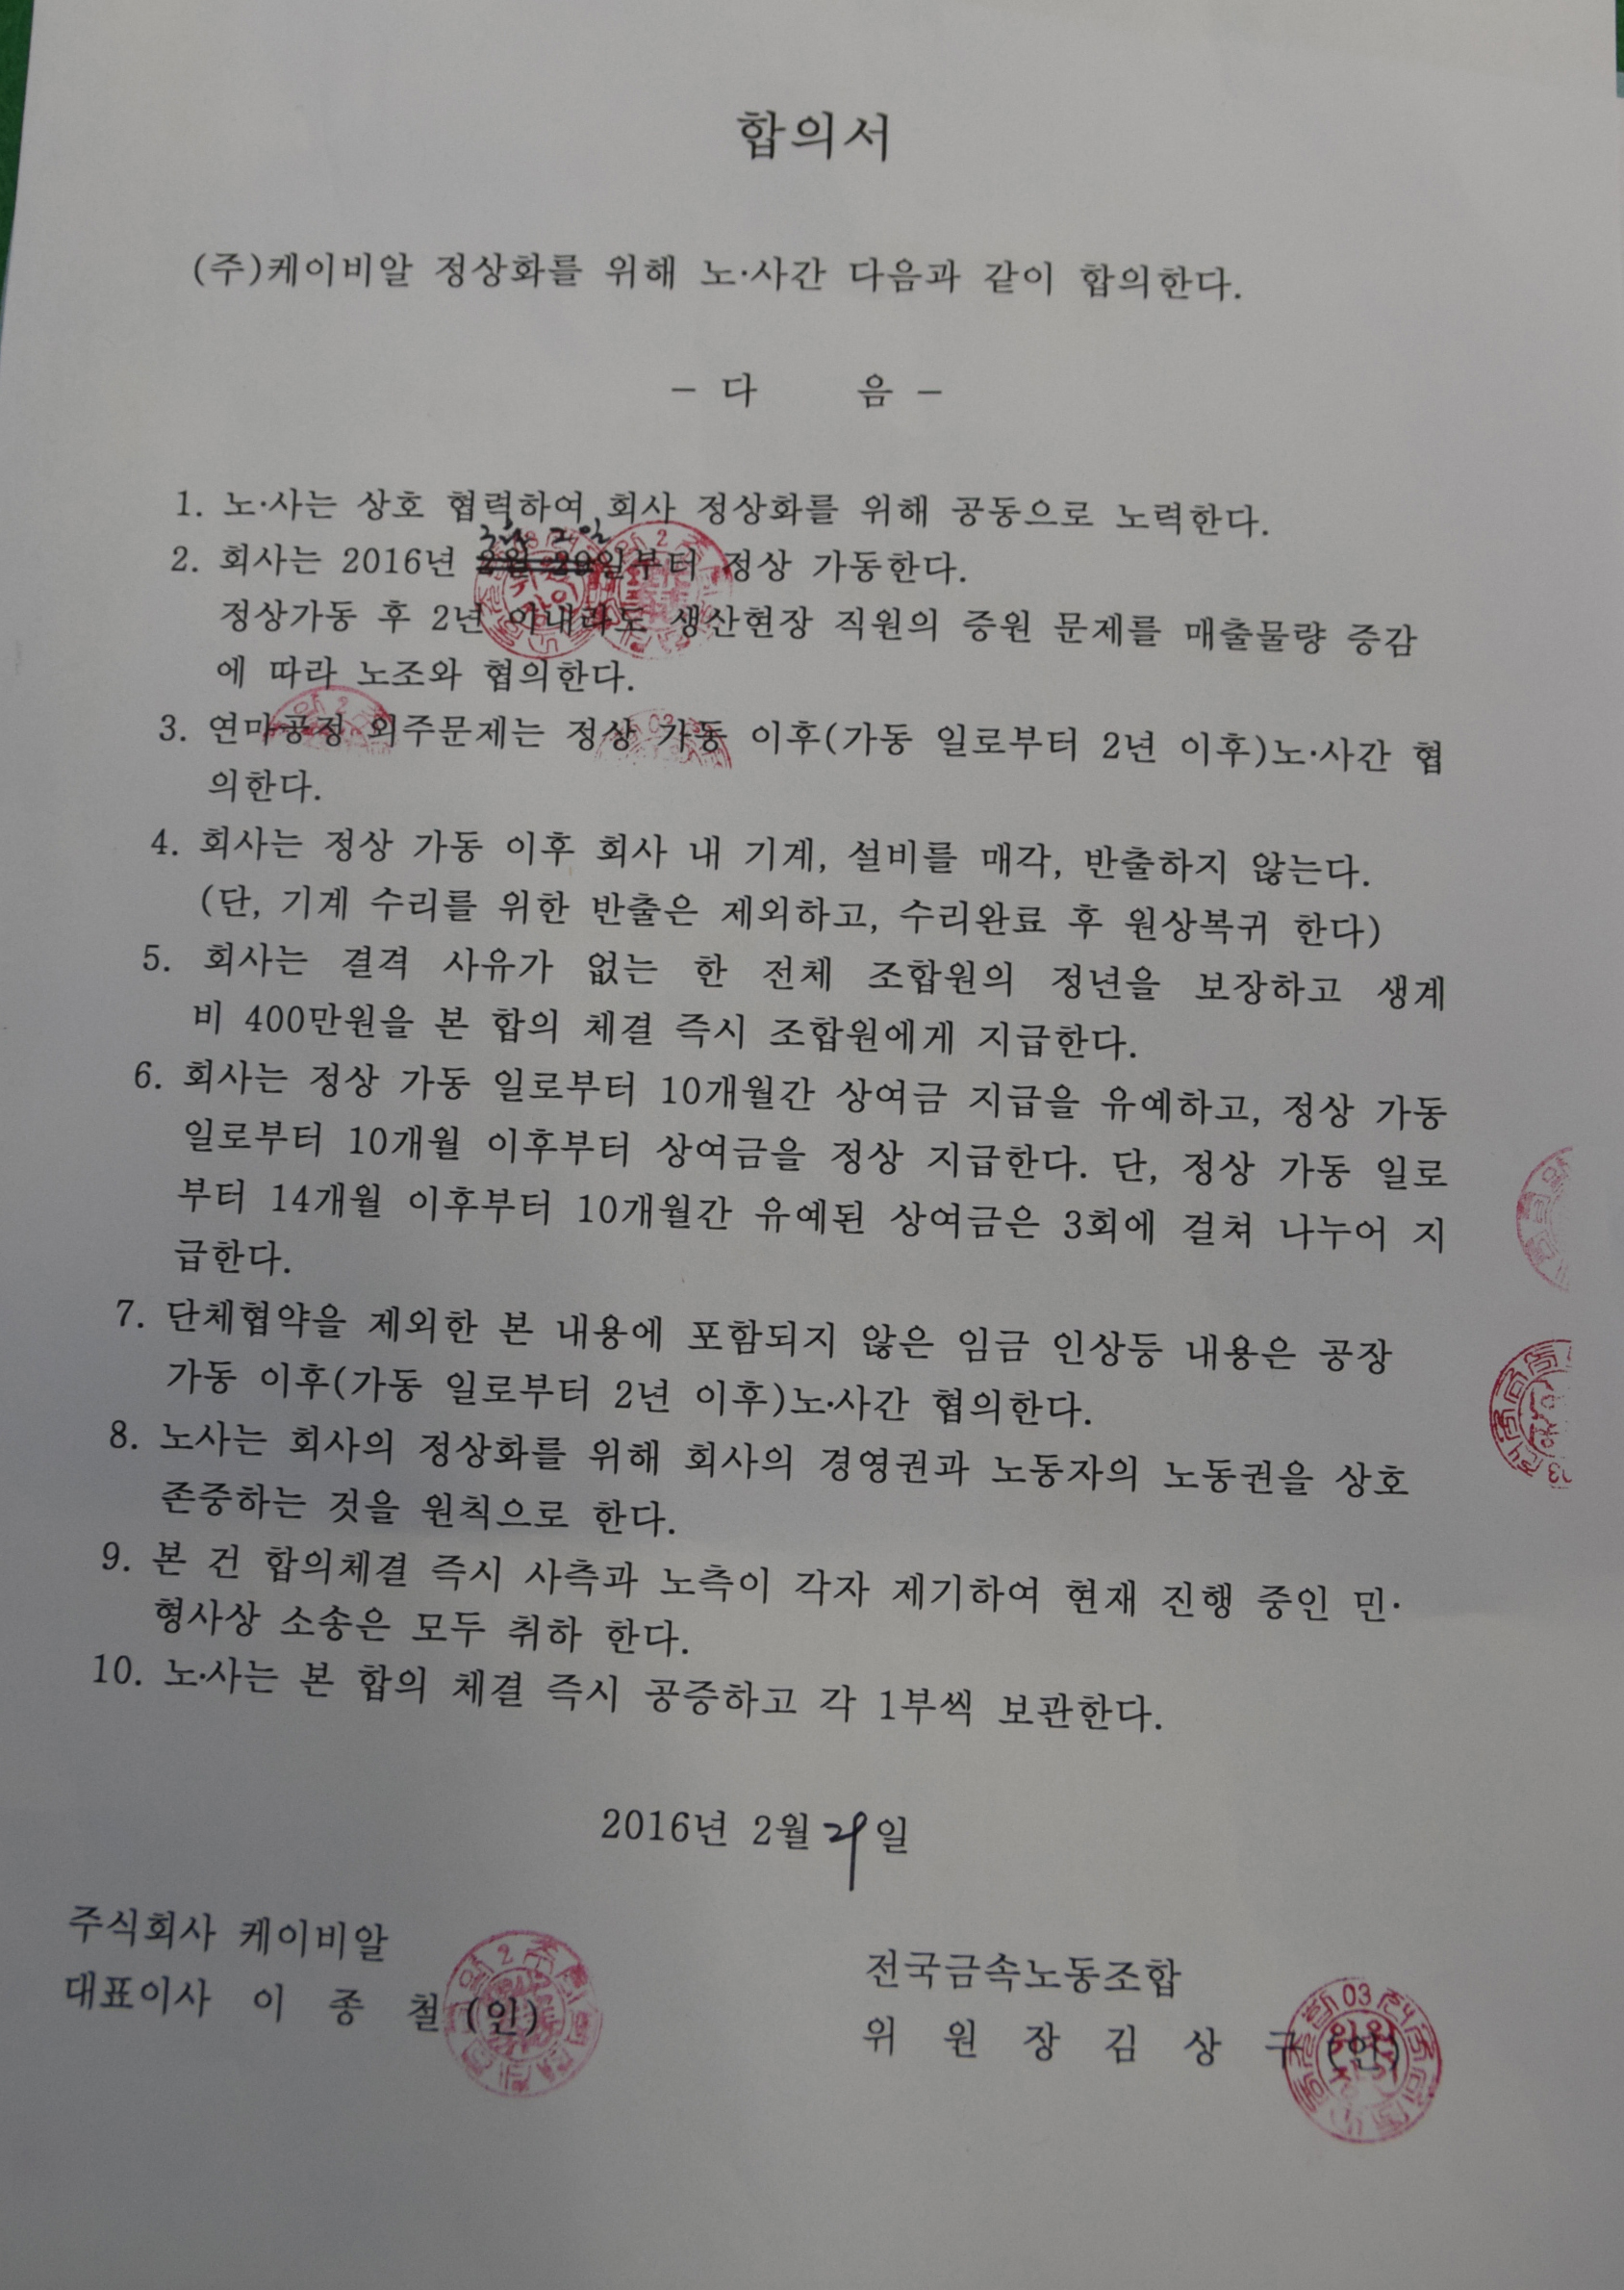 합의서
(주)케이비알 정상화를 위해 노·사간 다음과 같이 합의한다.
- 다 음 -
1. 노·사는 상호 협력하여 회사 정상화를 위해 공동으로 노력한다.
3월 2일
2. 회사는 2016년 2월 29일부터 정상 가동한다.
정상가동 후 2년 이내라도 생산현장 직원의 증원 문제를 매출물량 증감
에 따라 노조와 협의한다.
3. 연마공정 외주문제는 정상 가동 이후(가동 일로부터 2년 이후)노·사간 협
의한다.
4. 회사는 정상 가동 이후 회사 내 기계, 설비를 매각, 반출하지 않는다.
(단, 기계 수리를 위한 반출은 제외하고, 수리완료 후 원상복귀 한다)
5. 회사는 결격 사유가 없는 한 전체 조합원의 정년을 보장하고 생계
비 400만원을 본 합의 체결 즉시 조합원에게 지급한다.
6. 회사는 정상 가동 일로부터 10개월간 상여금 지급을 유예하고, 정상 가동
일로부터 10개월 이후부터 상여금을 정상 지급한다. 단, 정상 가동 일로
부터 14개월 이후부터 10개월간 유예된 상여금은 3회에 걸쳐 나누어 지
급한다.
7. 단체협약을 제외한 본 내용에 포함되지 않은 임금 인상등 내용은 공장
가동 이후(가동 일로부터 2년 이후)노·사간 협의한다.
8. 노사는 회사의 정상화를 위해 회사의 경영권과 노동자의 노동권을 상호
존중하는 것을 원칙으로 한다.
9. 본 건 합의체결 즉시 사측과 노측이 각자 제기하여 현재 진행 중인 민·
형사상 소송은 모두 취하 한다.
10. 노·사는 본 합의 체결 즉시 공증하고 각 1부씩 보관한다.
2016년 2월 29일
주식회사 케이비알
대표이사 이 종 철 (인)
전국금속노동조합
위 원 장 김 상 구 (인)